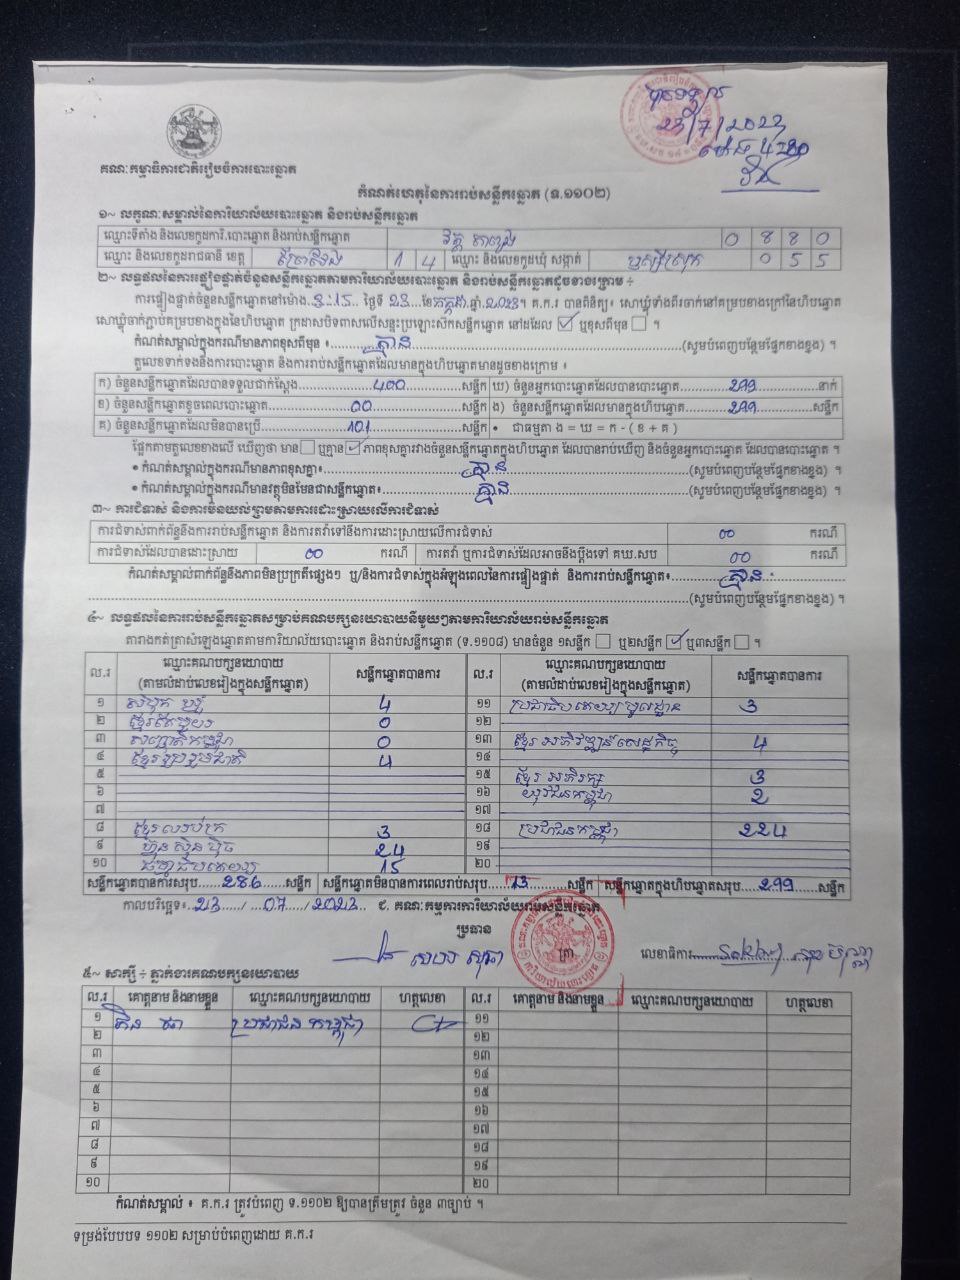 បានទទួល
23/7/2023
គណៈកម្មាធិការជាតិរៀបចំការបោះឆ្នោត
កំណត់ហេតុនៃការរាប់សន្លឹកឆ្នោត (ទ.១១០២)
១~ លក្ខណៈសម្គាល់នៃការិយាល័យបោះឆ្នោត និងរាប់សន្លឹកឆ្នោត
ឈ្មោះទីតាំង និងលេខកូដការិ.បោះឆ្នោត និងរាប់សន្លឹកឆ្នោត 0 8 8 0
ឈ្មោះ និងលេខកូដរាជធានី ខេត្ត 1 4 ឈ្មោះ និងលេខកូដឃុំ សង្កាត់ ឫស្សីស្រុក 0 5 5
២- លទ្ធផលនៃការផ្ទៀងផ្ទាត់ចំនួនសន្លឹកឆ្នោតតាមការិយាល័យបោះឆ្នោត និងរាប់សន្លឹកឆ្នោតដូចខាងក្រោម ÷
ការផ្ទៀងផ្ទាត់ចំនួនសន្លឹកឆ្នោតនៅម៉ោង 3:15 ថ្ងៃទី 23 ខែកក្កដា ឆ្នាំ 2023។ គ.ក.រ បានពិនិត្យ៖ សោឃ្លុំទាំងពីរចាក់នៅគម្របខាងក្រៅនៃហិបឆ្នោត
សោឃ្លុំចាក់ភ្ជាប់គម្របខាងក្នុងនៃហិបឆ្នោត ក្រដាសបិទពាសលើសន្ទះប្រឡោះសឹកសន្លឹកឆ្នោត នៅដដែល ☑ ឬខុសពីមុន ☐ ។
កំណត់សម្គាល់ក្នុងករណីមានភាពខុសពីមុន ៖ គ្មាន (សូមបំពេញបន្ថែមផ្នែកខាងខ្នង) ។
តួលេខទាក់ទងនឹងការបោះឆ្នោត និងរាប់សន្លឹកឆ្នោតដែលមានក្នុងហិបឆ្នោតមានដូចខាងក្រោម ៖
ក) ចំនួនសន្លឹកឆ្នោតដែលបានទទួលជាក់ស្តែង 400 សន្លឹក ឃ) ចំនួនអ្នកបោះឆ្នោតដែលបានបោះឆ្នោត 299 នាក់
ខ) ចំនួនសន្លឹកឆ្នោតខូចពេលបោះឆ្នោត 00 សន្លឹក ង) ចំនួនសន្លឹកឆ្នោតដែលមានក្នុងហិបឆ្នោត 299 សន្លឹក
គ) ចំនួនសន្លឹកឆ្នោតដែលមិនបានប្រើ 101 សន្លឹក • ជាធម្មតា ង = ឃ = ក - ( ខ + គ )
ផ្អែកតាមតួលេខខាងលើ ឃើញថា មាន ☐ ឬគ្មាន ☑ ភាពខុសគ្នារវាងចំនួនសន្លឹកឆ្នោតក្នុងហិបឆ្នោត ដែលបានរាប់ឃើញ និងចំនួនអ្នកបោះឆ្នោត ដែលបានបោះឆ្នោត ។
• កំណត់សម្គាល់ក្នុងករណីមានភាពខុសគ្នា៖ គ្មាន (សូមបំពេញបន្ថែមផ្នែកខាងខ្នង) ។
• កំណត់សម្គាល់ក្នុងករណីមានវត្ថុមិនមែនជាសន្លឹកឆ្នោត៖ គ្មាន (សូមបំពេញបន្ថែមផ្នែកខាងខ្នង) ។
៣~ ការជំទាស់ និងការមិនយល់ព្រមតាមការដោះស្រាយលើការជំទាស់
ការជំទាស់ពាក់ព័ន្ធនឹងការរាប់សន្លឹកឆ្នោត និងការតវ៉ាទៅនឹងការដោះស្រាយលើការជំទាស់ 00 ករណី
ការជំទាស់ដែលបានដោះស្រាយ 00 ករណី ការតវ៉ា ឬការជំទាស់ដែលអាចនឹងប្ដឹងទៅ គឃ.សប 00 ករណី
កំណត់សម្គាល់ពាក់ព័ន្ធនឹងភាពមិនប្រក្រតីផ្សេងៗ ឬ/និងការជំទាស់ក្នុងអំឡុងពេលនៃការផ្ទៀងផ្ទាត់ និងការរាប់សន្លឹកឆ្នោត៖ គ្មាន
(សូមបំពេញបន្ថែមផ្នែកខាងខ្នង) ។
៤~ លទ្ធផលនៃការរាប់សន្លឹកឆ្នោតសម្រាប់គណបក្សនយោបាយនីមួយៗតាមការិយាល័យរាប់សន្លឹកឆ្នោត
តារាងកត់ត្រាសំឡេងឆ្នោតតាមការិយាល័យបោះឆ្នោត និងរាប់សន្លឹកឆ្នោត (ទ.១១០៨) មានចំនួន ១សន្លឹក ☐ ឬ២សន្លឹក ☑ ឬ៣សន្លឹក ☐ ។
ល.រ ឈ្មោះគណបក្សនយោបាយ (តាមលំដាប់លេខរៀងក្នុងសន្លឹកឆ្នោត) សន្លឹកឆ្នោតបានការ ល.រ ឈ្មោះគណបក្សនយោបាយ (តាមលំដាប់លេខរៀងក្នុងសន្លឹកឆ្នោត) សន្លឹកឆ្នោតបានការ
១ សំបុកឃ្មុំ 4 ១១ ប្រជាធិបតេយ្យមូលដ្ឋាន 3
២ ខ្មែរតែមួយ 0 ១២
៣ សញ្ជាតិកម្ពុជា 0 ១៣ ខ្មែរអភិវឌ្ឍន៍សេដ្ឋកិច្ច 4
៤ ខ្មែររួបរួមជាតិ 4 ១៤
៥ ១៥ ខ្មែរអភិរក្ស 3
៦ ១៦ យុវជនកម្ពុជា 2
៧ ១៧
៨ ខ្មែរឈប់ក្រ 3 ១៨ ប្រជាជនកម្ពុជា 224
៩ ហ្វ៊ុនស៊ិនប៉ិច 24 ១៩
១០ 15 ២០
សន្លឹកឆ្នោតបានការសរុប 286 សន្លឹក សន្លឹកឆ្នោតមិនបានការពេលរាប់សរុប 13 សន្លឹក សន្លឹកឆ្នោតក្នុងហិបឆ្នោតសរុប 299 សន្លឹក
កាលបរិច្ឆេទ៖ 23 / 07 / 2023 ជ. គណៈកម្មការការិយាល័យរាប់សន្លឹកឆ្នោត
ប្រធាន
ត្រា
លេខាធិការ
៥~ សាក្សី ÷ ភ្នាក់ងារគណបក្សនយោបាយ
ល.រ គោត្តនាម និងនាមខ្លួន ឈ្មោះគណបក្សនយោបាយ ហត្ថលេខា ល.រ គោត្តនាម និងនាមខ្លួន ឈ្មោះគណបក្សនយោបាយ ហត្ថលេខា
១ ប្រជាជនកម្ពុជា ១១
២ ១២
៣ ១៣
៤ ១៤
៥ ១៥
៦ ១៦
៧ ១៧
៨ ១៨
៩ ១៩
១០ ២០
កំណត់សម្គាល់ ៖ គ.ក.រ ត្រូវបំពេញ ទ.១១០២ ឱ្យបានត្រឹមត្រូវ ចំនួន ៣ច្បាប់ ។
ទម្រង់បែបបទ ១១០២ សម្រាប់បំពេញដោយ គ.ក.រ